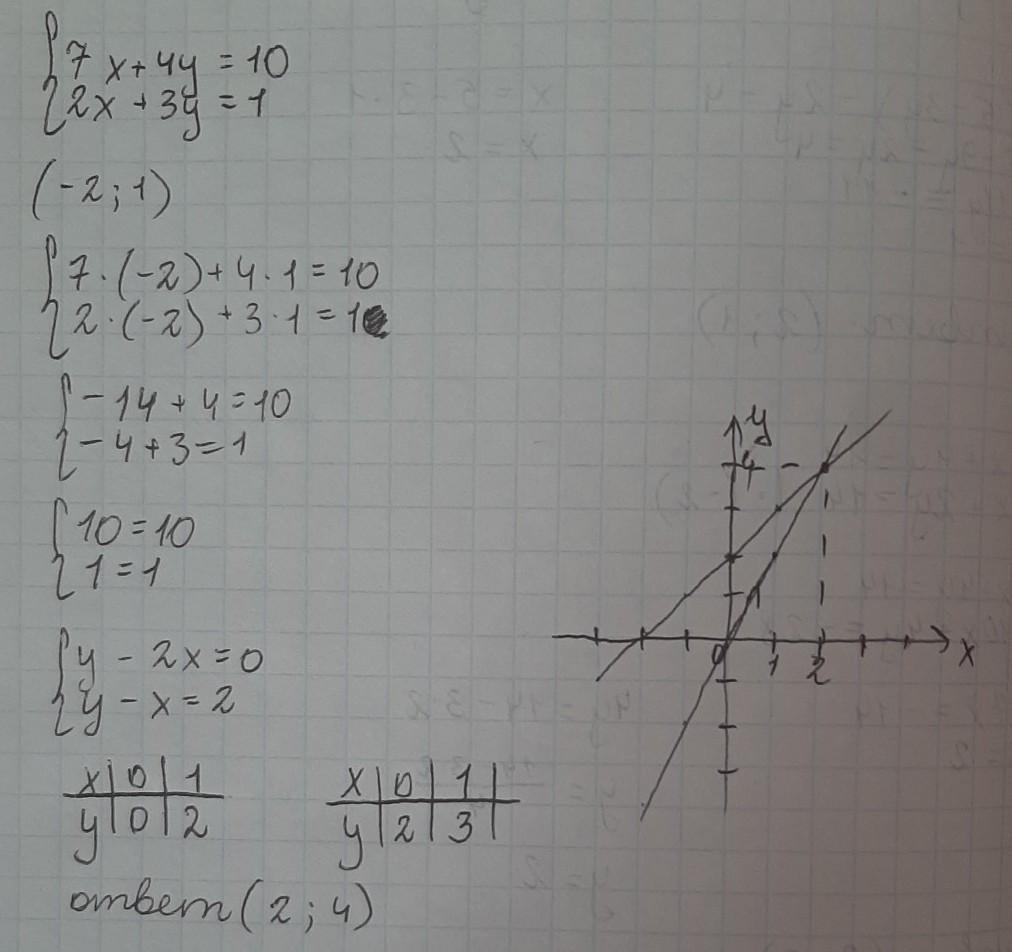 7x + 4y = 10
2x + 3y = 1
(-2; 1)
7 · (-2) + 4 · 1 = 10
2 · (-2) + 3 · 1 = 1
-14 + 4 = 10
-4 + 3 = 1
10 = 10
1 = 1
y - 2x = 0
y - x = 2
x | 0 | 1
y | 0 | 2
x | 0 | 1 |
y | 2 | 3 |
ответ (2; 4)
y
4
1
0 1 2 x